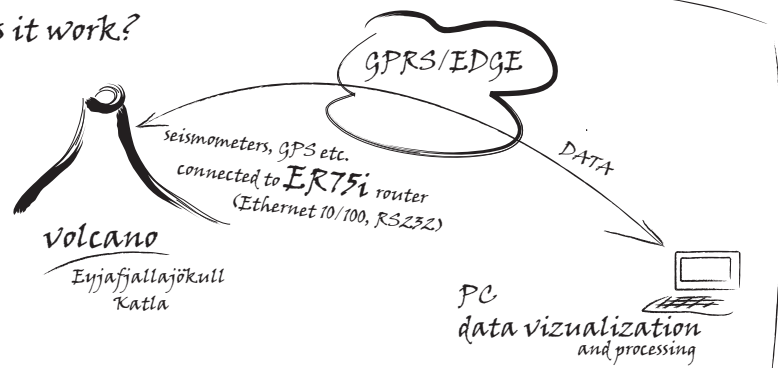 it work?
GPRS/EDGE
seismometers, GPS etc.
connected to ER75i router
(Ethernet 10/100, RS232)
DATA
volcano
Eyjafjallajökull
Katla
PC
data vizualization
and processing